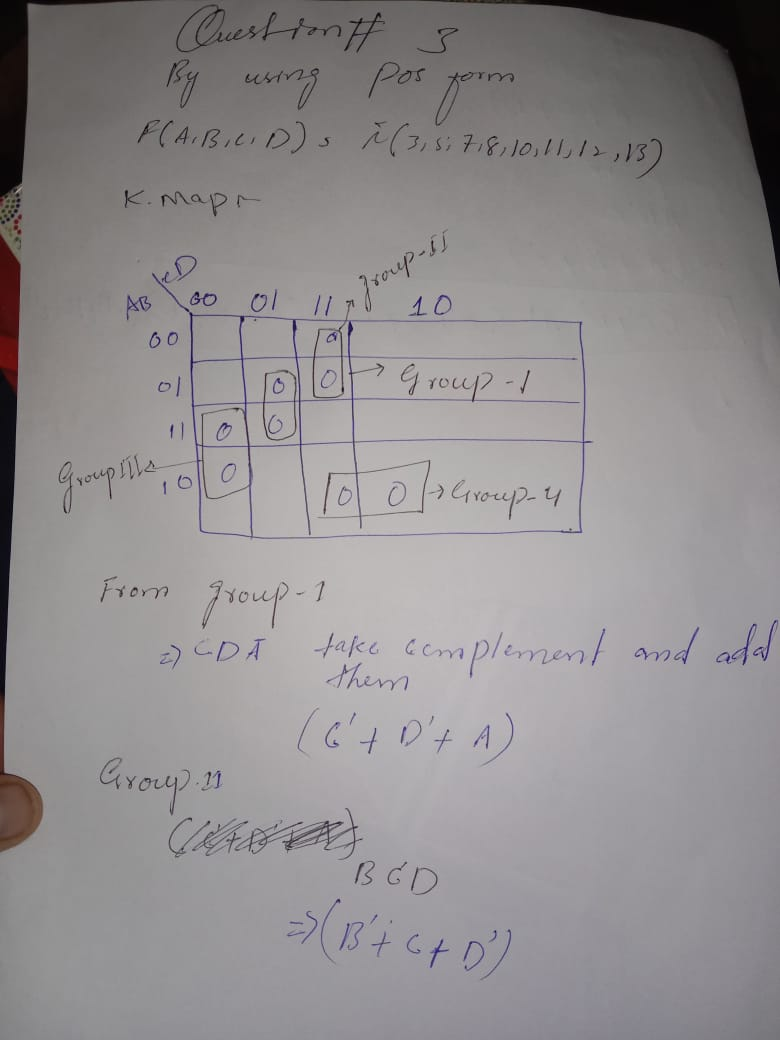 Question # 3
By using Pos form
F(A,B,C,D) = π(3,5,7,8,10,11,12,13)
K.Map
Group-II
CD
AB 00 01 11 10
00 0
01 0 0 → Group-1
11 0 0
Group III
10 0 0 0 → Group-4
From group-1
⇒ CDĀ take complement and add
them
(C'+D'+A)
Group-II
BC'D
⇒(B'+C+D')